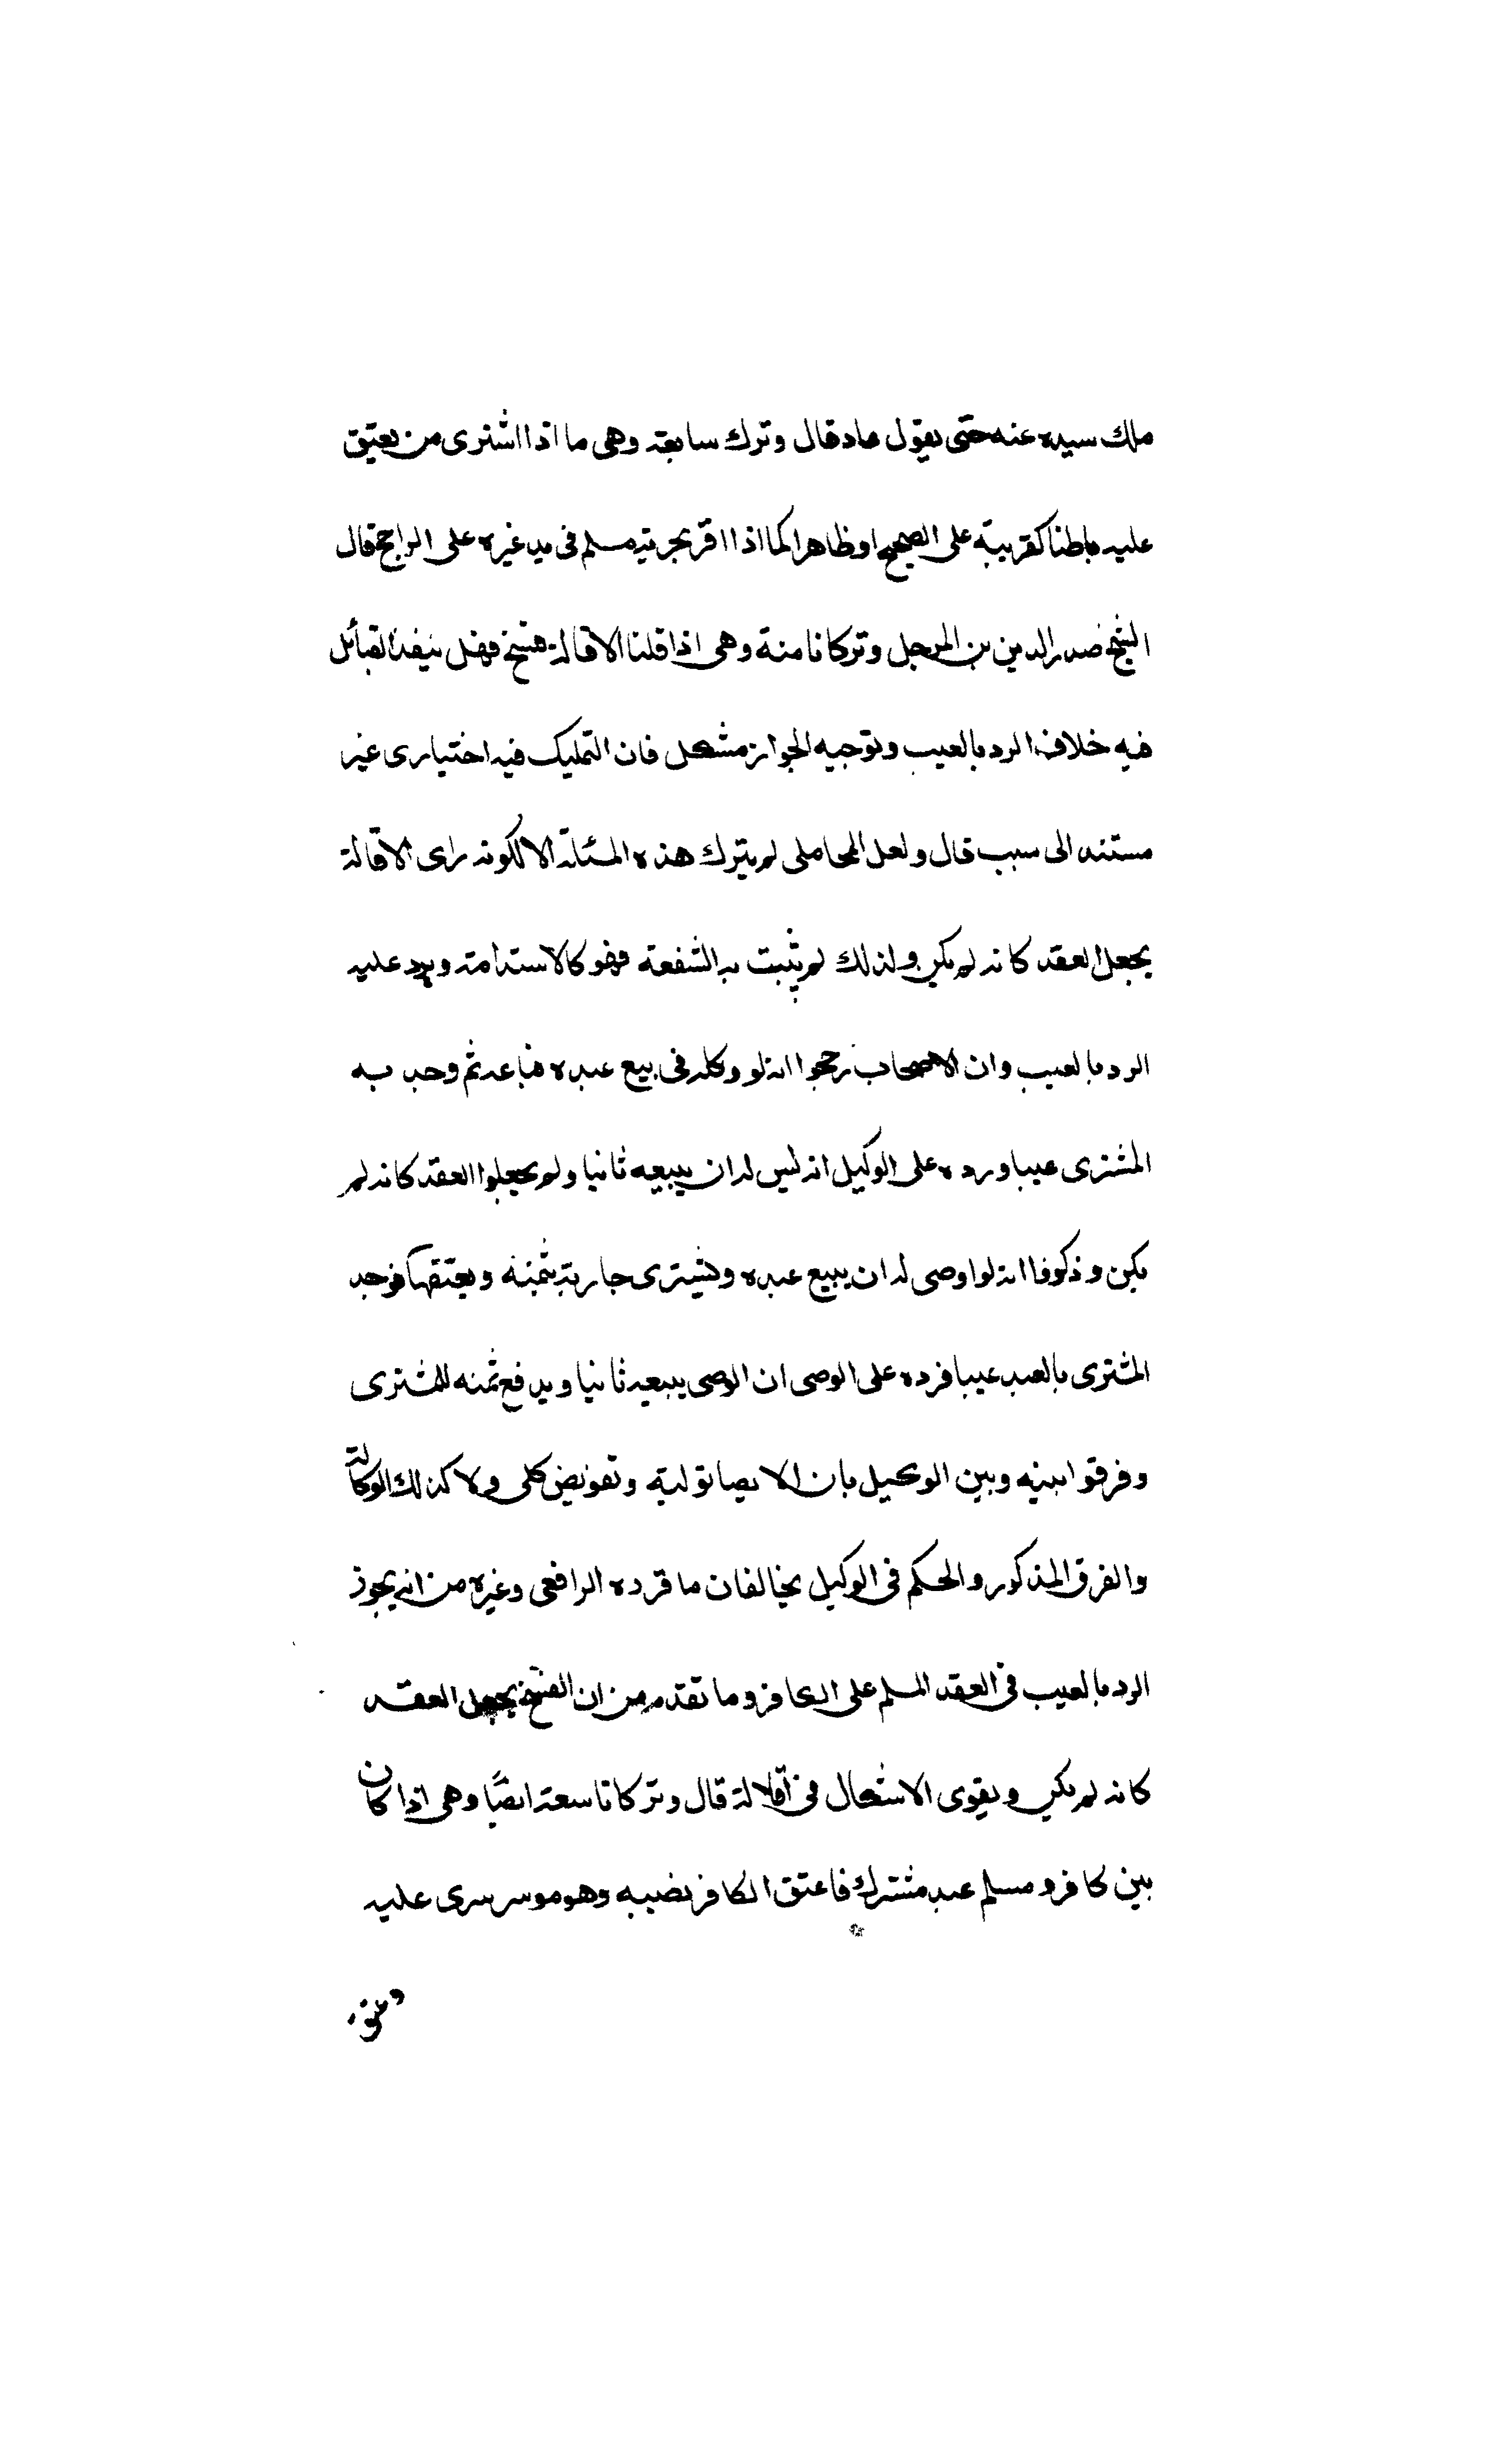 ملك سيده عنه حتى يقول عاد قال وترك سابعة وهى ما اذا اشترى من يعتق
عليه باطنا كقريبة على الصحيح او ظاهرا كما اذا اقر بحرية مسلم فى يد غيره على الراجح قال
الشيخ صدر الدين بن المرجل وتركا ثامنة وهى اذا قلنا الاقالة فسخ فهل ينفذ التقابل
فيه خلاف الرد بالعيب وتوجيه الجواز مشكل فان التمليك فيه اختيارى غير
مستند الى سبب قال ولعل المحاملى لم يترك هذه المسئلة الا لكونه راى الاقالة
يجعل العقد كانه لم يكن ولذلك لم يثبت به الشفعة فهو كالاستدامة ويرد عليه
الرد بالعيب وان الاصحاب رجحوا انه لو وكله فى بيع عبده فباعه ثم وجد به
المشترى عيبا ورده على الوكيل انه ليس له ان يبيعه ثانيا ولم يجعلوا العقد كانه لم
يكن وذكروا انه لو اوصى له ان يبيع عبده ويشترى جارية بثمنه ويعتقها فوجد
المشترى بالعبد عيبا فرده على الوصى ان الوصى يبيعه ثانيا ويدفع ثمنه للمشترى
وفرقوا بينه وبين الوكيل بان الايصا تولية وتفويض كلى ولا كذلك الوكالة
والفرق المذكور والحكم فى الوكيل يخالفان ما قرره الرافعى وغيره من انه يجوز
الرد بالعيب فى العقد المسلم على الكافر وما تقدم من ان الفسخ يجعل العقد
كانه لم يكن ويقوى الاشكال فى اقالة قال وتركا تاسعة ايضًا وهى اذا كان
بين كافر و مسلم عبد مشترك فاعتق الكافر نصيبه وهو موسر سرى عليه